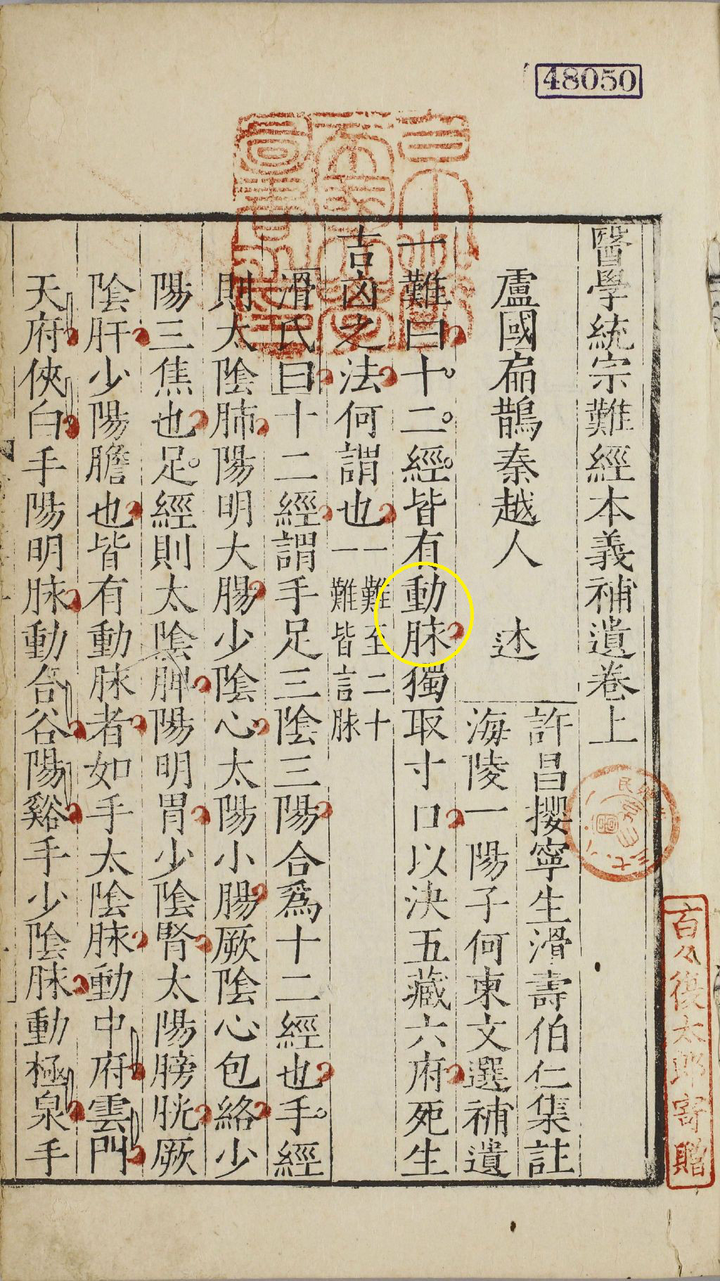 48050
醫學統宗難經本義補遺卷上
盧國扁鵲秦越人 述
許昌攖寧生滑壽伯仁集註
海陵一陽子何柬文選補遺
一難曰十二經皆有動脉獨取寸口以決五藏六府死生
吉凶之法何謂也一難至二十
難皆言脉
滑氏曰十二經謂手足三陰三陽合爲十二經也手經
則太陰肺陽明大腸少陰心太陽小腸厥陰心包絡少
陽三焦也足經則太陰脾陽明胃少陰腎太陽膀胱厥
陰肝少陽膽也皆有動脉者如手太陰脉動中府雲門
天府俠白手陽明脉動合谷陽谿手少陰脉動極泉手